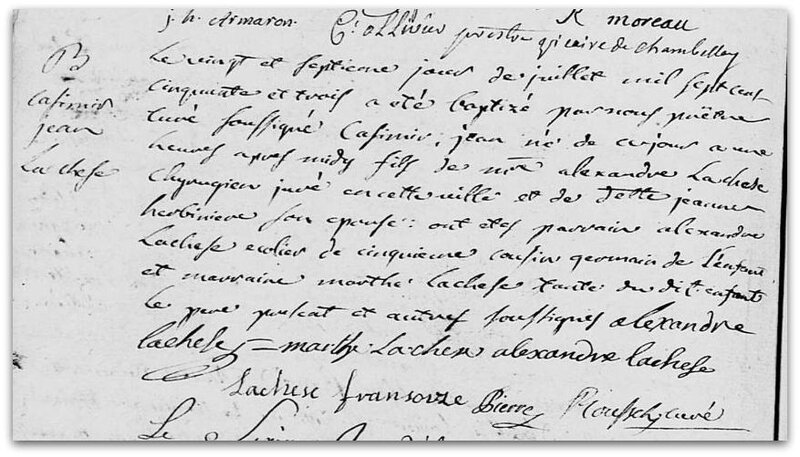 j. h. Armaron. C: ollivier R moreau
prestre vicaire de Chambellay
B
Casimir
jean
Lachese
Le vingt et septieme jours de juillet mil sept cent
cinquante et trois a été baptizé par nous prêtre
curé soussigné Casimir, jean né de ce jours a une
heures apres midy fils de mtr alexandre Lachese
Chyrugien juré en cette ville et de delle jeanne
herbiniere son epouse : ont etes parrain alexandre
Lachese ecolier de cinquieme cousin germain de L'enfant
et marraine marthe Lachese tante du dit enfant
le pere present et autres soussignes alexandre
lachese = marthe Lachese alexandre lachese
Lachese fransoize Pierre curé
Le